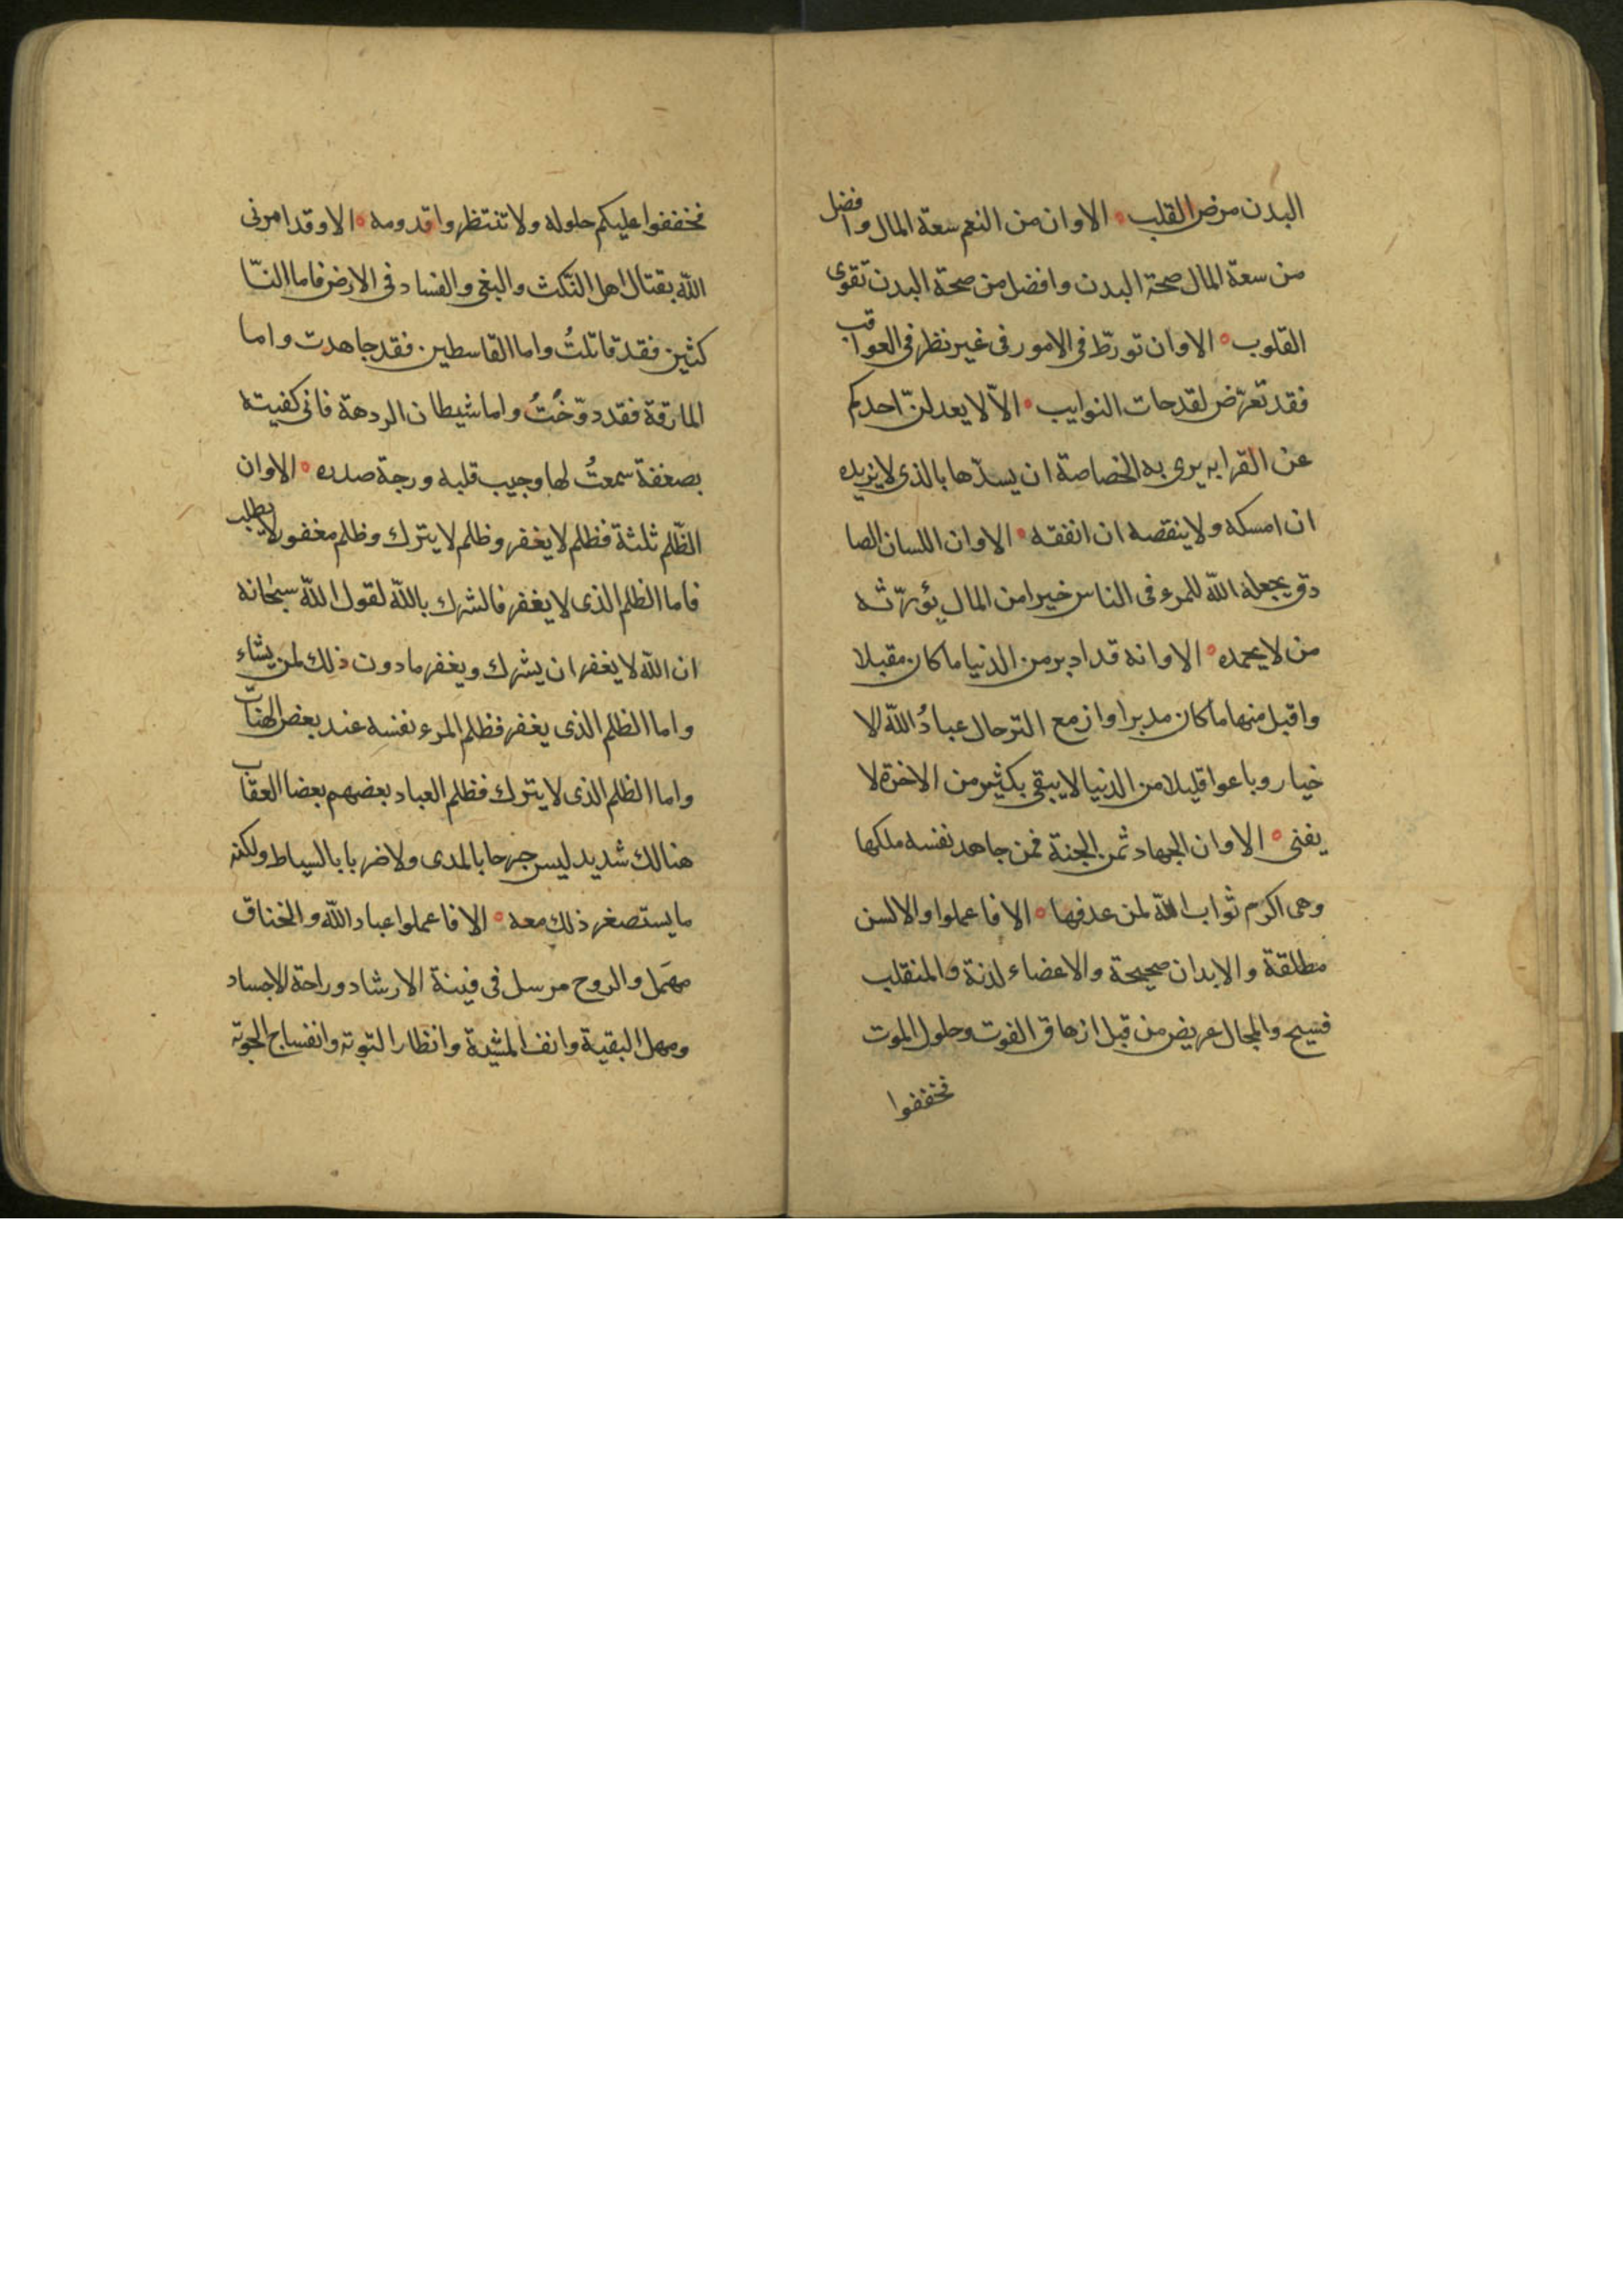 البدن مرض القلب ه الا وان من النعم سعة المال وافضل
من سعة المال صحة البدن وافضل من صحة البدن تقوى
القلوب ه الا وان تورّط فى الامور فى غير نظر فى العواقب
فقد تعرّض لقدحات النوايب ه الاّ لا يعدلنّ احدكم
عن القرابه يرى به الخصاصة ان يسدّها بالذى لا يزيده
ان امسكه ولا ينقصه ان انفقه ه الا وان اللسان الصا
دق يجعله الله للمرء فى الناس خيرا من المال يؤرّثه
من لا يحمده ه الا وانه قد ادبر من الدنيا ما كان مقبلا
واقبل منها ما كان مدبرا وازمع الترحال عبادُ الله الا
خيار وباعوا قليلا من الدنيا لا يبقى بكثير من الاخرة لا
يفنى ه الا وان الجهاد ثمن الجنة فمن جاهد نفسه ملكها
وهى اكرم ثواب الله لمن عرفها ه الا فاعملوا والالسن
مطلقة والابدان صحيحة والاعضاء لدنة والمنقلب
فسيح والمجال عريض من قبل ازهاق الفوت وحلول الموت
فخففوا
فخففوا عليكم حلوله ولا تنتظروا قدومه ه الا وقد امرنى
الله بقتال اهل النّكث والبغى والفساد فى الارض فاما النّا
كثين فقد قاتلتُ واما القاسطين فقد جاهدت واما
المارقة فقد دوّختُ واما شيطان الردهة فانى كفيته
بصعقة سمعتُ لها وجيب قلبه ورجة صدره ه الا وان
الظّلم ثلثة فظلم لا يغفر وظلم لا يترك وظلم مغفور لا يطلب
فاما الظلم الذى لا يغفر فالشرك بالله لقول الله سبحانه
ان الله لا يغفر ان يشرك ويغفر ما دون ذلك لمن يشاء
واما الظلم الذى يغفر فظلم المرء نفسه عند بعض الهنات
واما الظلم الذى لا يترك فظلم العباد بعضهم بعضا العقاب
هنالك شديد ليس جرحا بالمدى ولا ضربا بالسياط ولكنه
ما يستصغر ذلك معه ه الا فاعملوا عباد الله والخناق
مهمل والروح مرسل فى فينة الارشاد وراحة الاجساد
ومهل البقية وانف المشية وانظار التوبة وانفساح الحوبة